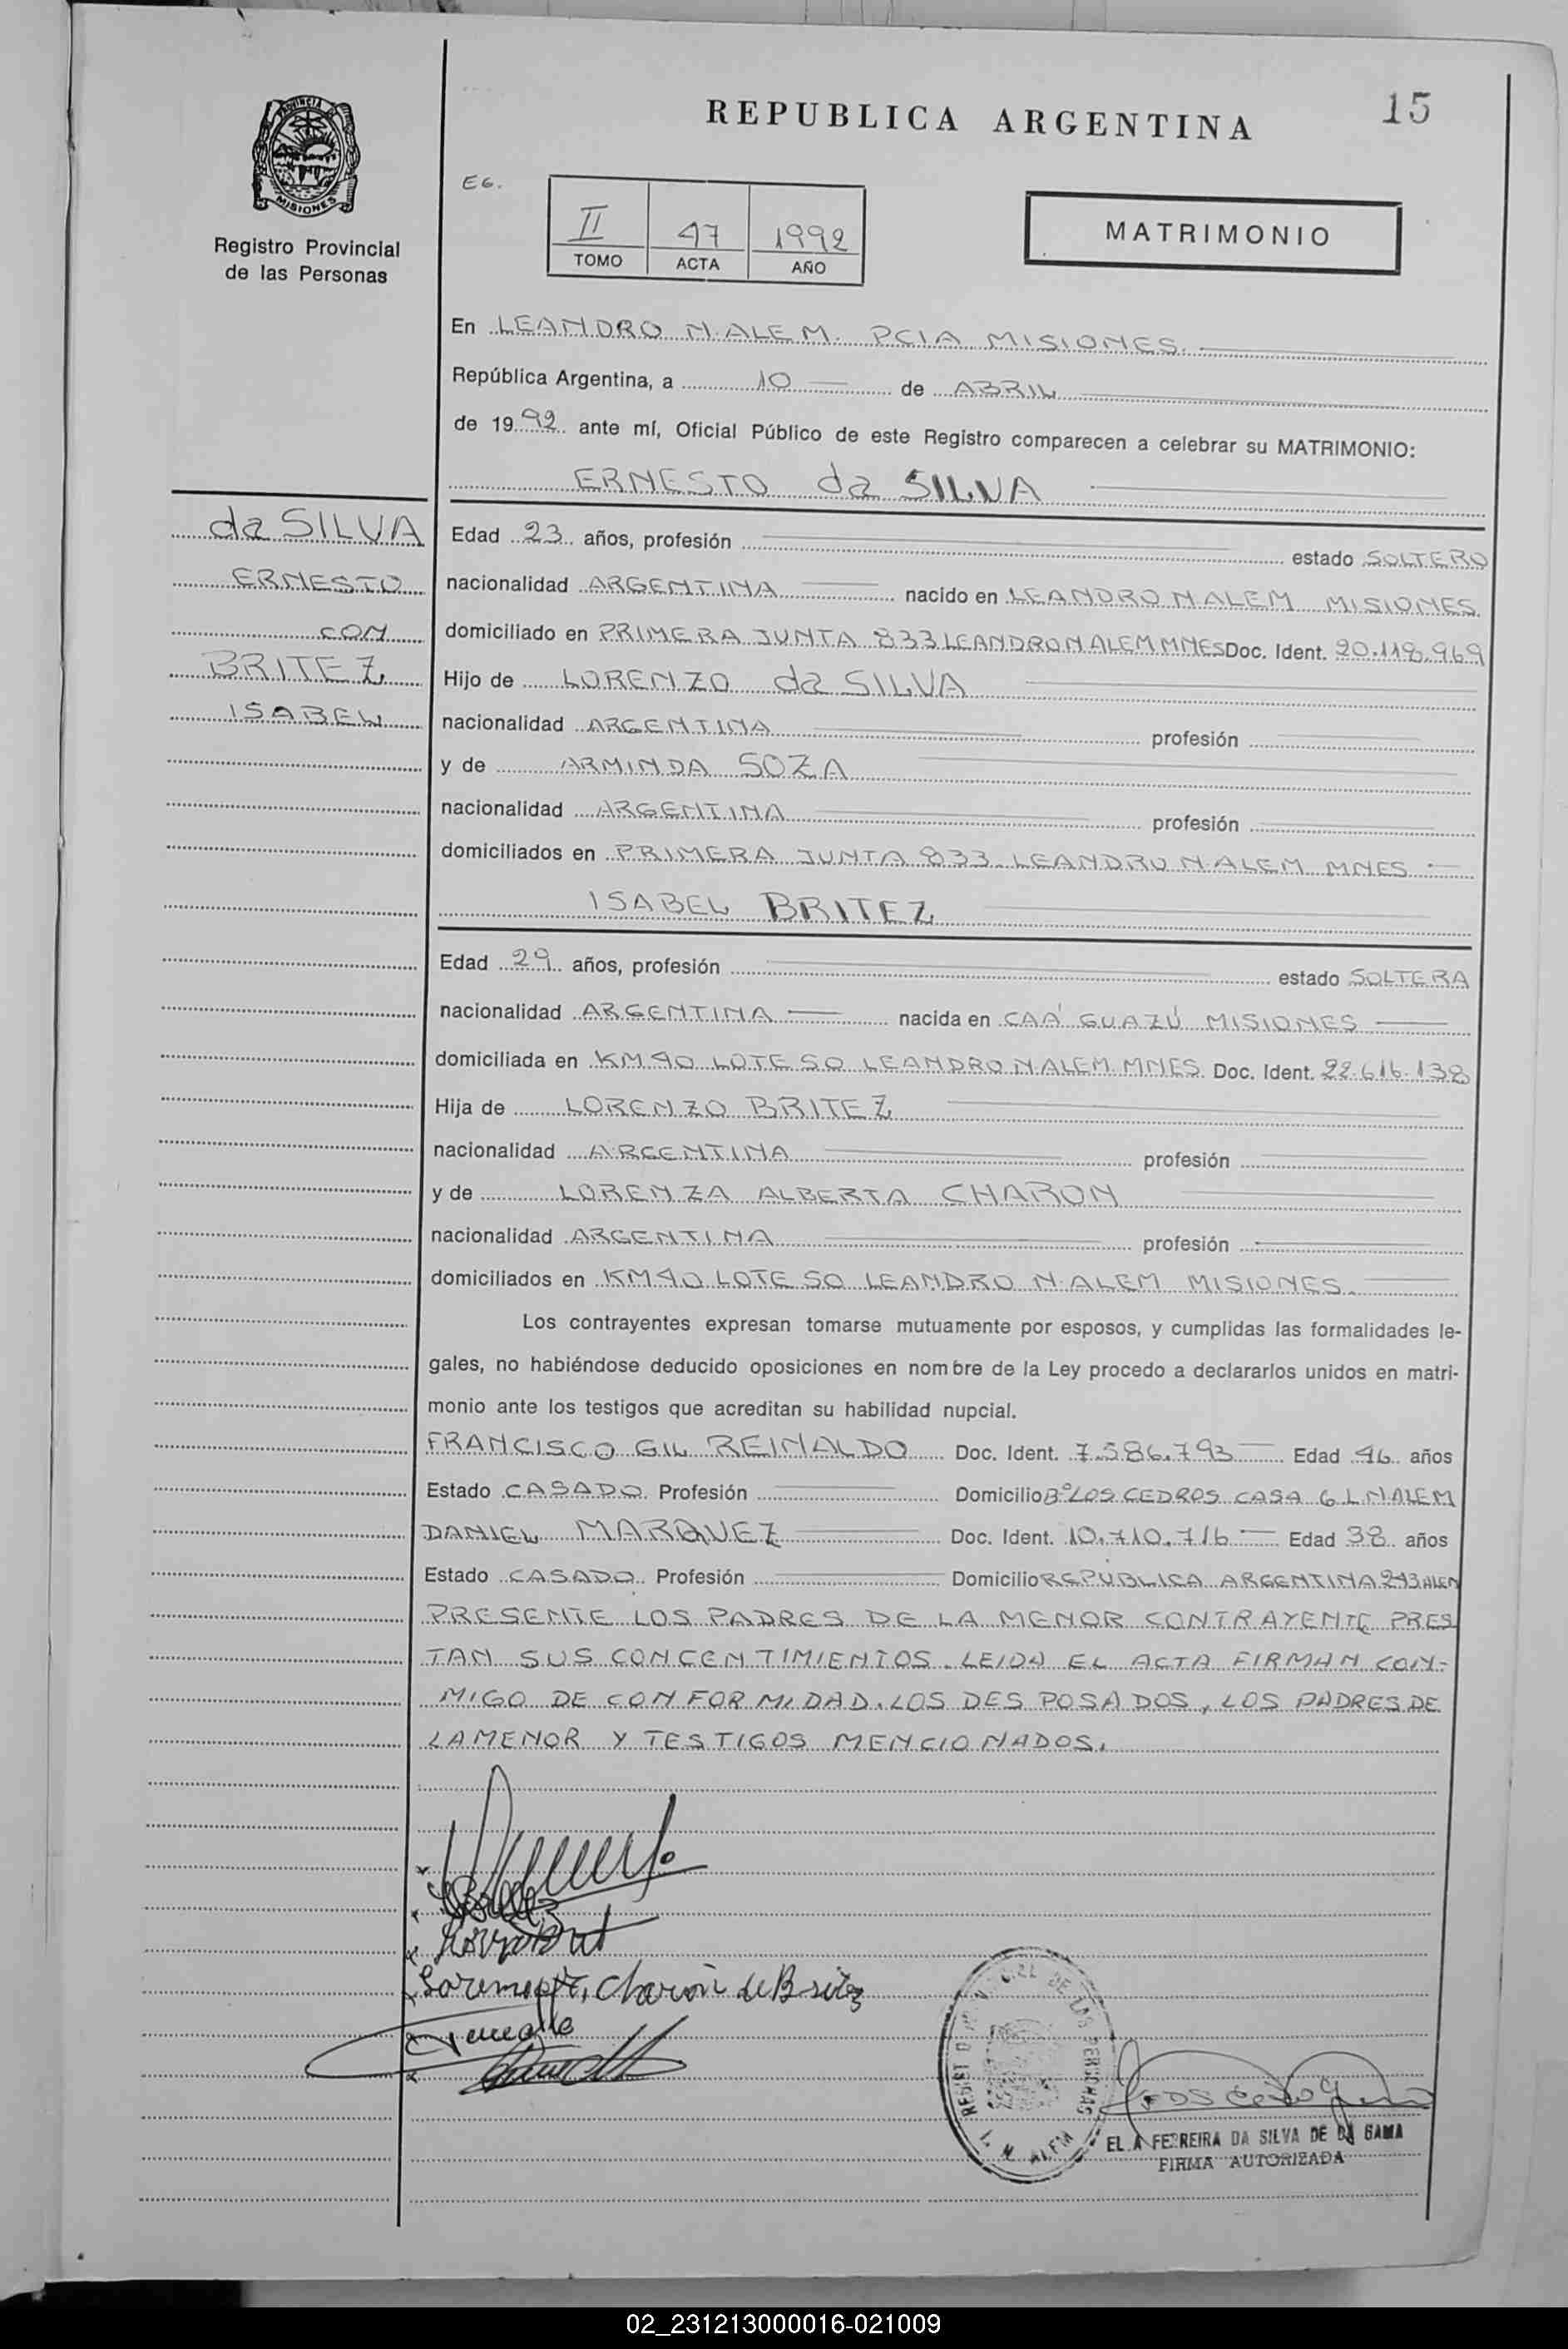 REPUBLICA ARGENTINA
15
PROVINCIA
MISIONES
Registro Provincial
de las Personas
E6.
II 47 1992
TOMO ACTA AÑO
MATRIMONIO
En LEANDRO N. ALEM. PCIA MISIONES.
República Argentina, a 10 de ABRIL
de 1992 ante mí, Oficial Público de este Registro comparecen a celebrar su MATRIMONIO:
ERNESTO da SILVA
da SILVA
ERNESTO
CON
BRITEZ
ISABEL
Edad 23 años, profesión estado SOLTERO
nacionalidad ARGENTINA nacido en LEANDRO N ALEM MISIONES
domiciliado en PRIMERA JUNTA 833 LEANDRO N ALEM MNES Doc. Ident. 20.118.969
Hijo de LORENZO da SILVA
nacionalidad ARGENTINA profesión
y de ARMINDA SOZA
nacionalidad ARGENTINA profesión
domiciliados en PRIMERA JUNTA 833 LEANDRO N. ALEM MNES
ISABEL BRITEZ
Edad 29 años, profesión estado SOLTERA
nacionalidad ARGENTINA nacida en CAÁ GUAZÚ MISIONES
domiciliada en KM 40 LOTE 50 LEANDRO N. ALEM MNES Doc. Ident. 22.616.138
Hija de LORENZO BRITEZ
nacionalidad ARGENTINA profesión
y de LORENZA ALBERTA CHARON
nacionalidad ARGENTINA profesión
domiciliados en KM 40 LOTE 50 LEANDRO N. ALEM MISIONES.
Los contrayentes expresan tomarse mutuamente por esposos, y cumplidas las formalidades le-
gales, no habiéndose deducido oposiciones en nombre de la Ley procedo a declararlos unidos en matri-
monio ante los testigos que acreditan su habilidad nupcial.
FRANCISCO GIL REINALDO Doc. Ident. 7.586.793 Edad 46 años
Estado CASADO Profesión Domicilio Bº LOS CEDROS CASA 6 L N ALEM
DANIEL MARQUEZ Doc. Ident. 10.710.716 Edad 38 años
Estado CASADO Profesión Domicilio REPUBLICA ARGENTINA 243 ALEM
PRESENTE LOS PADRES DE LA MENOR CONTRAYENTE PRES
TAN SUS CONCENTIMIENTOS. LEIDA EL ACTA FIRMAN CON-
MIGO DE CONFORMIDAD. LOS DESPOSADOS, LOS PADRES DE
LA MENOR Y TESTIGOS MENCIONADOS.
Charón de Britez
DE LAS PERSONAS
L. N. ALEM
FERREIRA DA SILVA DE DA GAMA
FIRMA AUTORIZADA
02_231213000016-021009